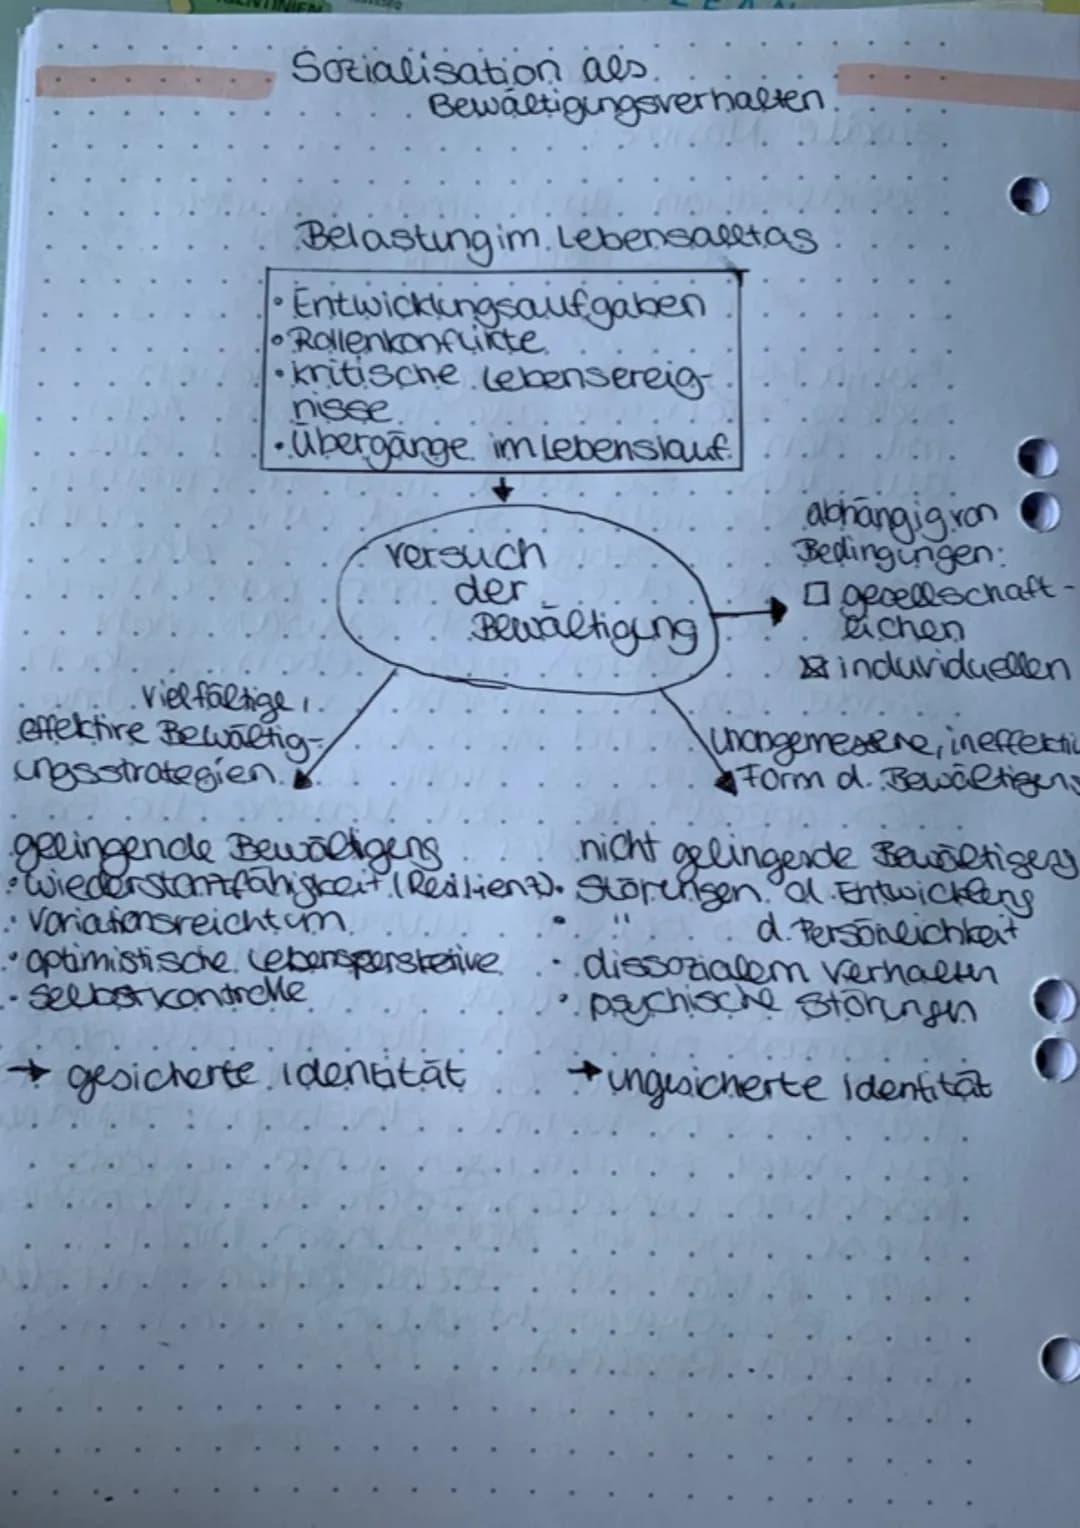 Sozialisation als
Bewältigungsverhalten
Belastung im Lebensalltas
• Entwicklungsaufgaben
• Rollenkonflikte
• kritische Lebensereig-
nisse
• Übergänge im Lebenslauf
versuch
der
Bewältigung
abhängig von
Bedingungen:
☐ gesellschaft-
lichen
☒ induviduellen
vielfältige,
effektive Bewältig-
ungsstrategien
unangemessene, ineffektiv
Form d. Bewältigung
gelingende Bewältigung
• Wiederstantfähigkeit (Resilienz)
• Variationsreichtum
• optimistische Lebensperspektive
• Selbstkontrolle
→ gesicherte Identität
nicht gelingende Bewältigung
• Störungen d. Entwicklung
• " d. Persönlichkeit
• dissozialem Verhalten
• psychische Störungen
→ ungesicherte Identität